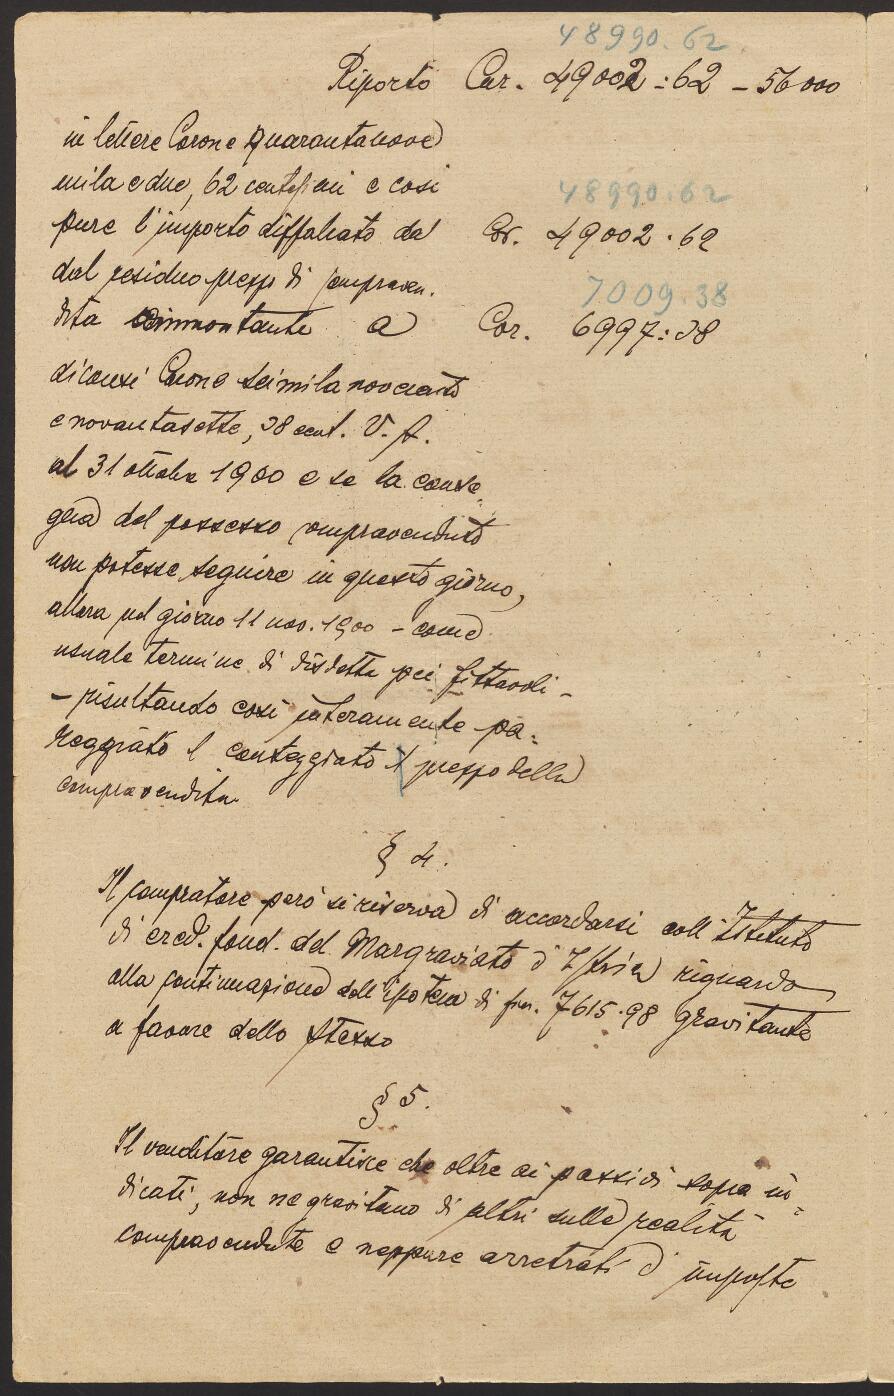 48990.62
Riporto Cor. 49002:62 – 56000
in lettere Corone quarantanove
mila e due, 62 centesimi e così
48990.62
pure l'importo diffalcato dal Cor. 49002.62
dal residuo prezzo di compraven.
7009.38
dita ammontante a Cor. 6997:38
diconsi Corone seimila novecento
e novantasette, 38 cent. V. A.
al 31 ottobre 1900 e se la conse-
gna del possesso compravenduto
non potesse seguire in questo giorno,
allora nel giorno 11 nov. 1900 – come
usuale termine di disdetta pei fittavoli –
– risultando così interamente pa-
reggiato l conteggiato prezzo della
compravendita.
§ 4.
Il compratore però si riserva di accordarsi coll'Istituto
di cred. fond. del Margraviato d'Istria riguardo
alla continuazione dell'ipoteca di fior. 7615.98 gravitante
a favore dello stesso
§ 5.
Il venditore garantisce che oltre ai passivi sopra in-
dicati, non ne gravitano di altri sulle realità
compravendute e neppure arretrati d'imposte